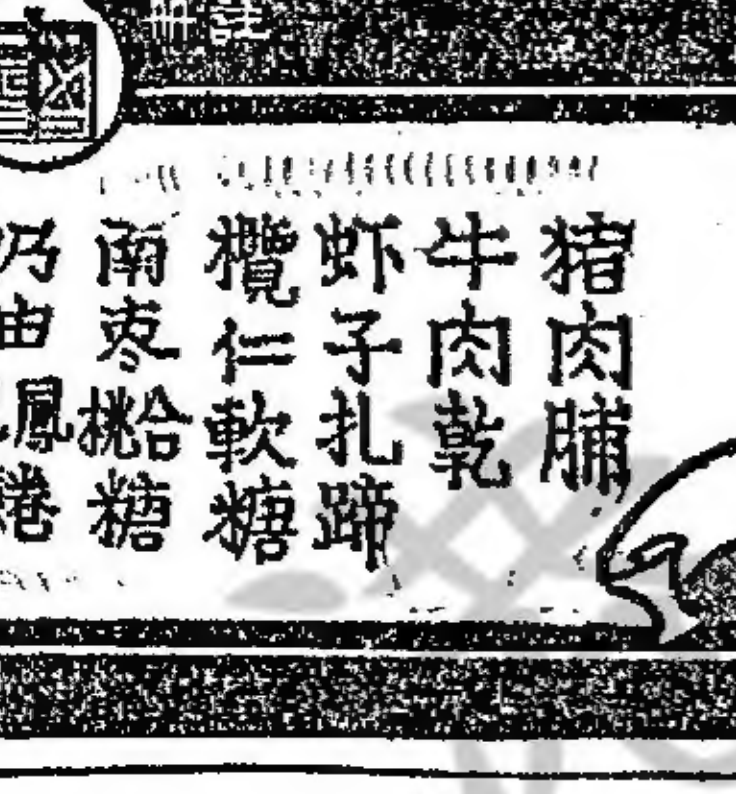 猪肉脯
牛肉乾
虾子扎蹄
欖仁軟糖
南枣桃合糖
奶由鳳
註冊